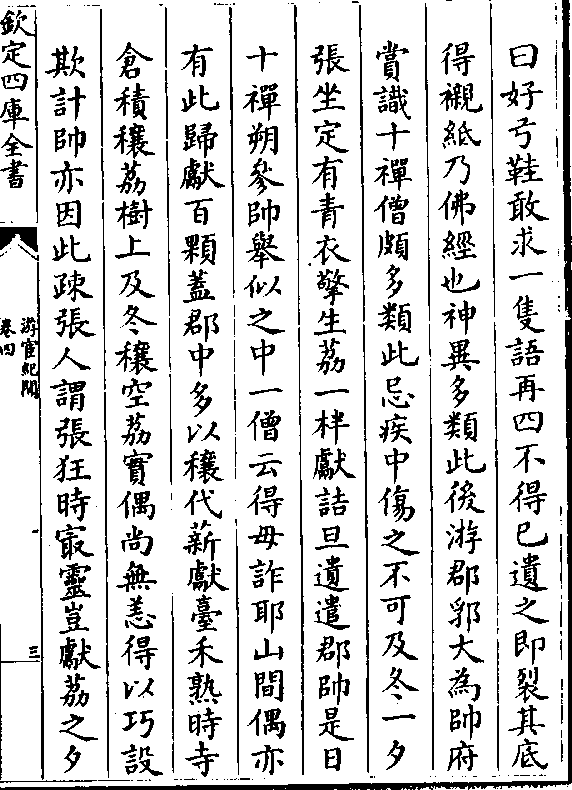 曰好弓鞋敢求一隻語再四不得已遺之即裂其底
得襯紙乃佛經也神異多類此後游郡郛大為帥府
賞識十禪僧頗多類此忌疾中傷之不可及冬一夕
張坐定有青衣擎生荔一柈獻詰旦遺遣郡帥是日
十禪朔參帥舉似之中一僧云得毋詐耶山間偶亦
有此歸獻百顆蓋郡中多以穰代薪獻臺禾熟時寺
倉積穰荔樹上及冬穰空荔實偶尚無恙得以巧設
欺計帥亦因此疎張人謂張狂時㝡靈豈獻荔之夕
欽定四庫全書
游宦紀聞
卷四
三